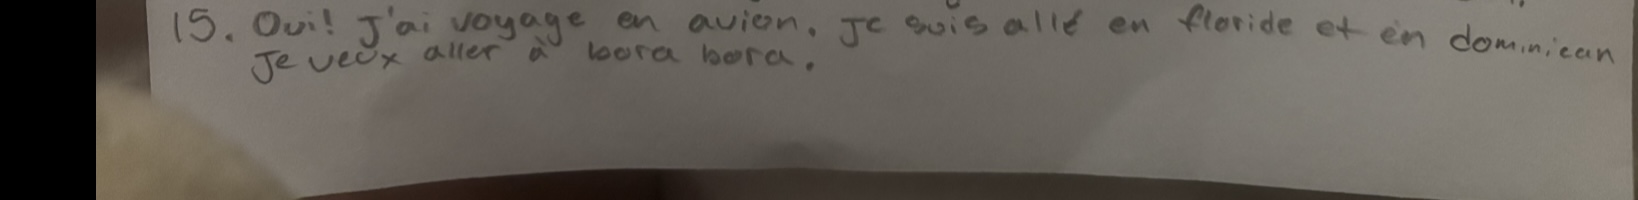 15. Oui! J'ai voyage en avion. Je suis allé en floride et en dominican
Je veux aller à bora bora.